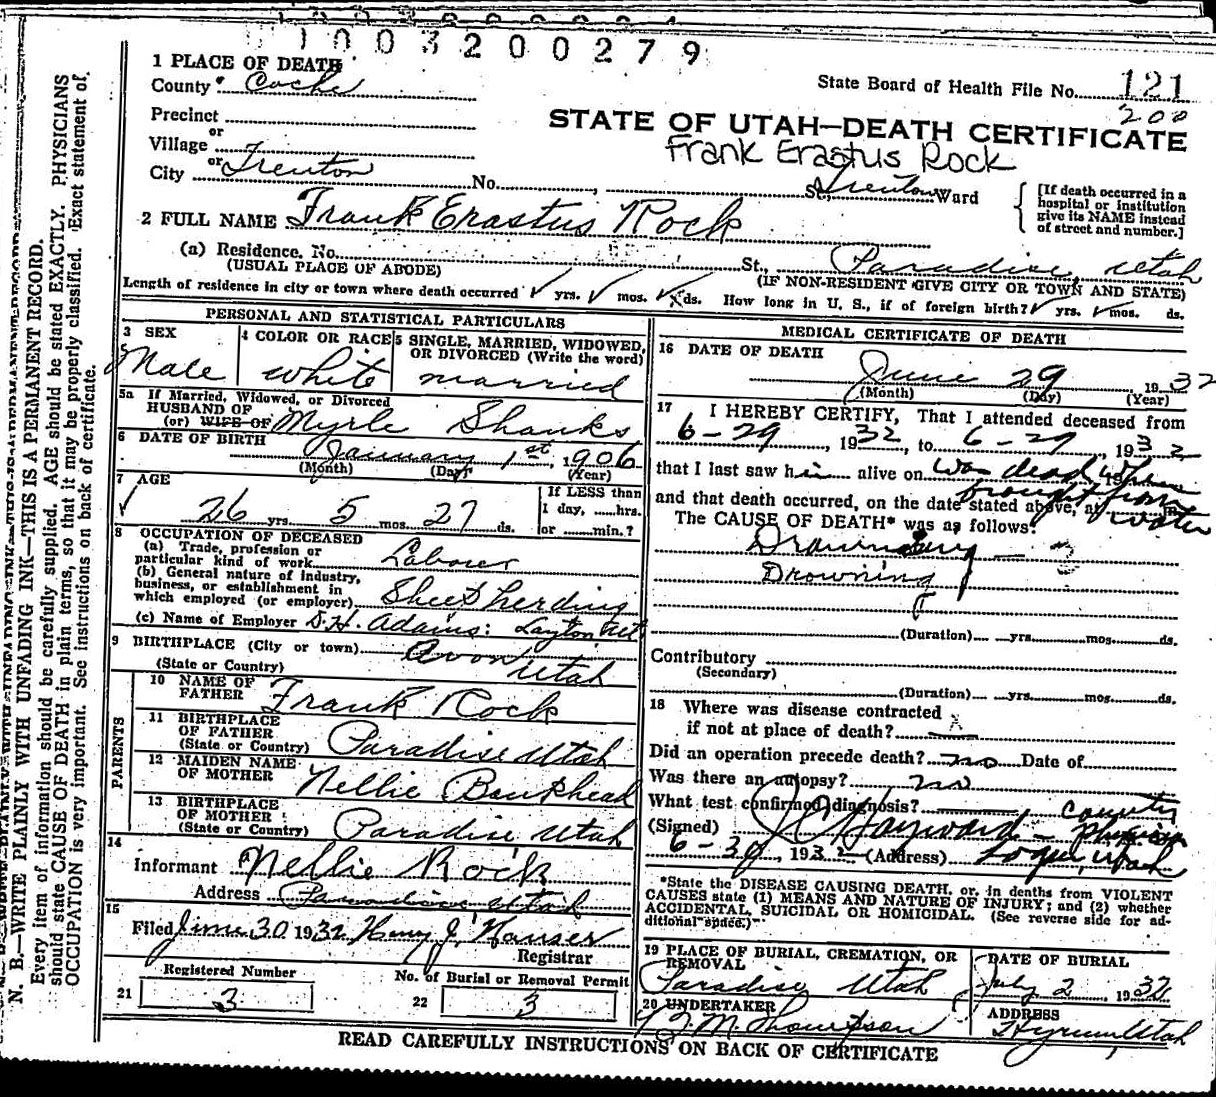 1003200279
1 PLACE OF DEATH
County Cache
State Board of Health File No. 121
200
Precinct
or
Village
or
City Trenton No. St., Trenton Ward
STATE OF UTAH—DEATH CERTIFICATE
Frank Erastus Rock
[If death occurred in a
hospital or institution
give its NAME instead
of street and number.]
2 FULL NAME Frank Erastus Rock
(a) Residence. No. St., Paradise Utah
(USUAL PLACE OF ABODE) (IF NON-RESIDENT GIVE CITY OR TOWN AND STATE)
Length of residence in city or town where death occurred yrs. mos. ds. How long in U. S., if of foreign birth? yrs. mos. ds.
PERSONAL AND STATISTICAL PARTICULARS
3 SEX
Male
4 COLOR OR RACE
white
5 SINGLE, MARRIED, WIDOWED,
OR DIVORCED (Write the word)
married
5a If Married, Widowed, or Divorced
HUSBAND OF
(or) WIFE OF Myrle Shanks
6 DATE OF BIRTH January 1st, 1906
(Month) (Day) (Year)
7 AGE
26 yrs. 5 mos. 27 ds.
If LESS than
1 day, hrs.
or min.?
8 OCCUPATION OF DECEASED
(a) Trade, profession or
particular kind of work Laborer
(b) General nature of industry,
business, or establishment in
which employed (or employer) Sheep herding
(c) Name of Employer D.H. Adams: Layton Ut
9 BIRTHPLACE (City or town) Avon
(State or Country) Utah
PARENTS
10 NAME OF
FATHER Frank Rock
11 BIRTHPLACE
OF FATHER
(State or Country) Paradise Utah
12 MAIDEN NAME
OF MOTHER Nellie Bankhead
13 BIRTHPLACE
OF MOTHER
(State or Country) Paradise Utah
14
Informant Nellie Rock
Address Paradise Utah
15
Filed June 30 1932 Henry J. Hauser
Registrar
Registered Number
21 3
No. of Burial or Removal Permit
22 3
MEDICAL CERTIFICATE OF DEATH
16 DATE OF DEATH
June 29, 1932
(Month) (Day) (Year)
17 I HEREBY CERTIFY, That I attended deceased from
6-29, 1932, to 6-29, 1932
that I last saw him alive on was dead when
and that death occurred, on the date stated above, at brought from water m.
The CAUSE OF DEATH* was as follows:
Drowning
Drowning
(Duration) yrs. mos. ds.
Contributory
(Secondary)
(Duration) yrs. mos. ds.
18 Where was disease contracted
if not at place of death? X
Did an operation precede death? no Date of
Was there an autopsy? no
What test confirmed diagnosis?
(Signed) J C Hayward - County Physician
6-30, 1932 (Address) Logan, Utah
*State the DISEASE CAUSING DEATH, or, in deaths from VIOLENT
CAUSES state (1) MEANS AND NATURE OF INJURY; and (2) whether
ACCIDENTAL, SUICIDAL OR HOMICIDAL. (See reverse side for ad-
ditional space.)
19 PLACE OF BURIAL, CREMATION, OR
REMOVAL
Paradise Utah
DATE OF BURIAL
July 2, 1932
20 UNDERTAKER
M. Thompson
ADDRESS
Hyrum, Utah
READ CAREFULLY INSTRUCTIONS ON BACK OF CERTIFICATE
N. B.—WRITE PLAINLY WITH UNFADING INK—THIS IS A PERMANENT RECORD.
Every item of information should be carefully supplied. AGE should be stated EXACTLY. PHYSICIANS
should state CAUSE OF DEATH in plain terms, so that it may be properly classified. Exact statement of
OCCUPATION is very important. See instructions on back of certificate.